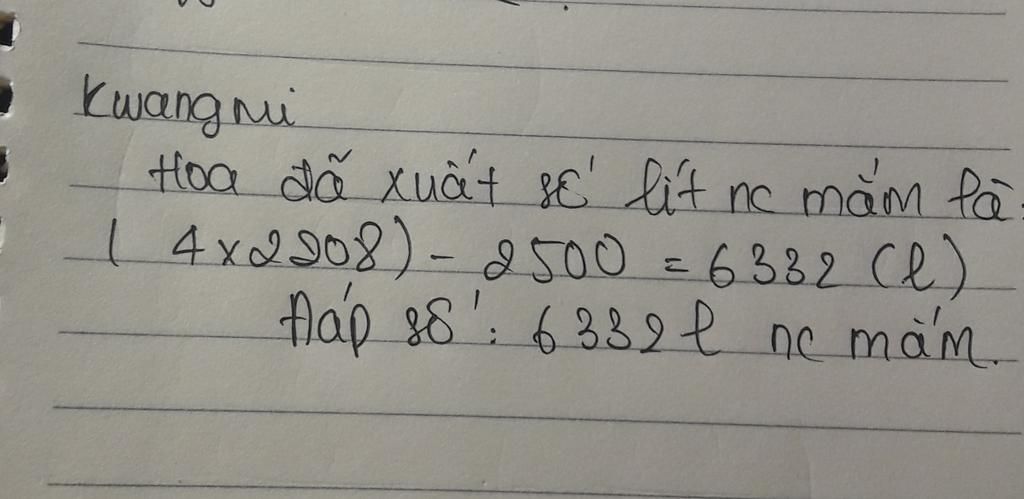 Kwangnui
Hoa đã xuất số lít nc mắm là:
( 4x2208) - 2500 = 6332 (l)
Đáp số: 6332 l nc mắm.